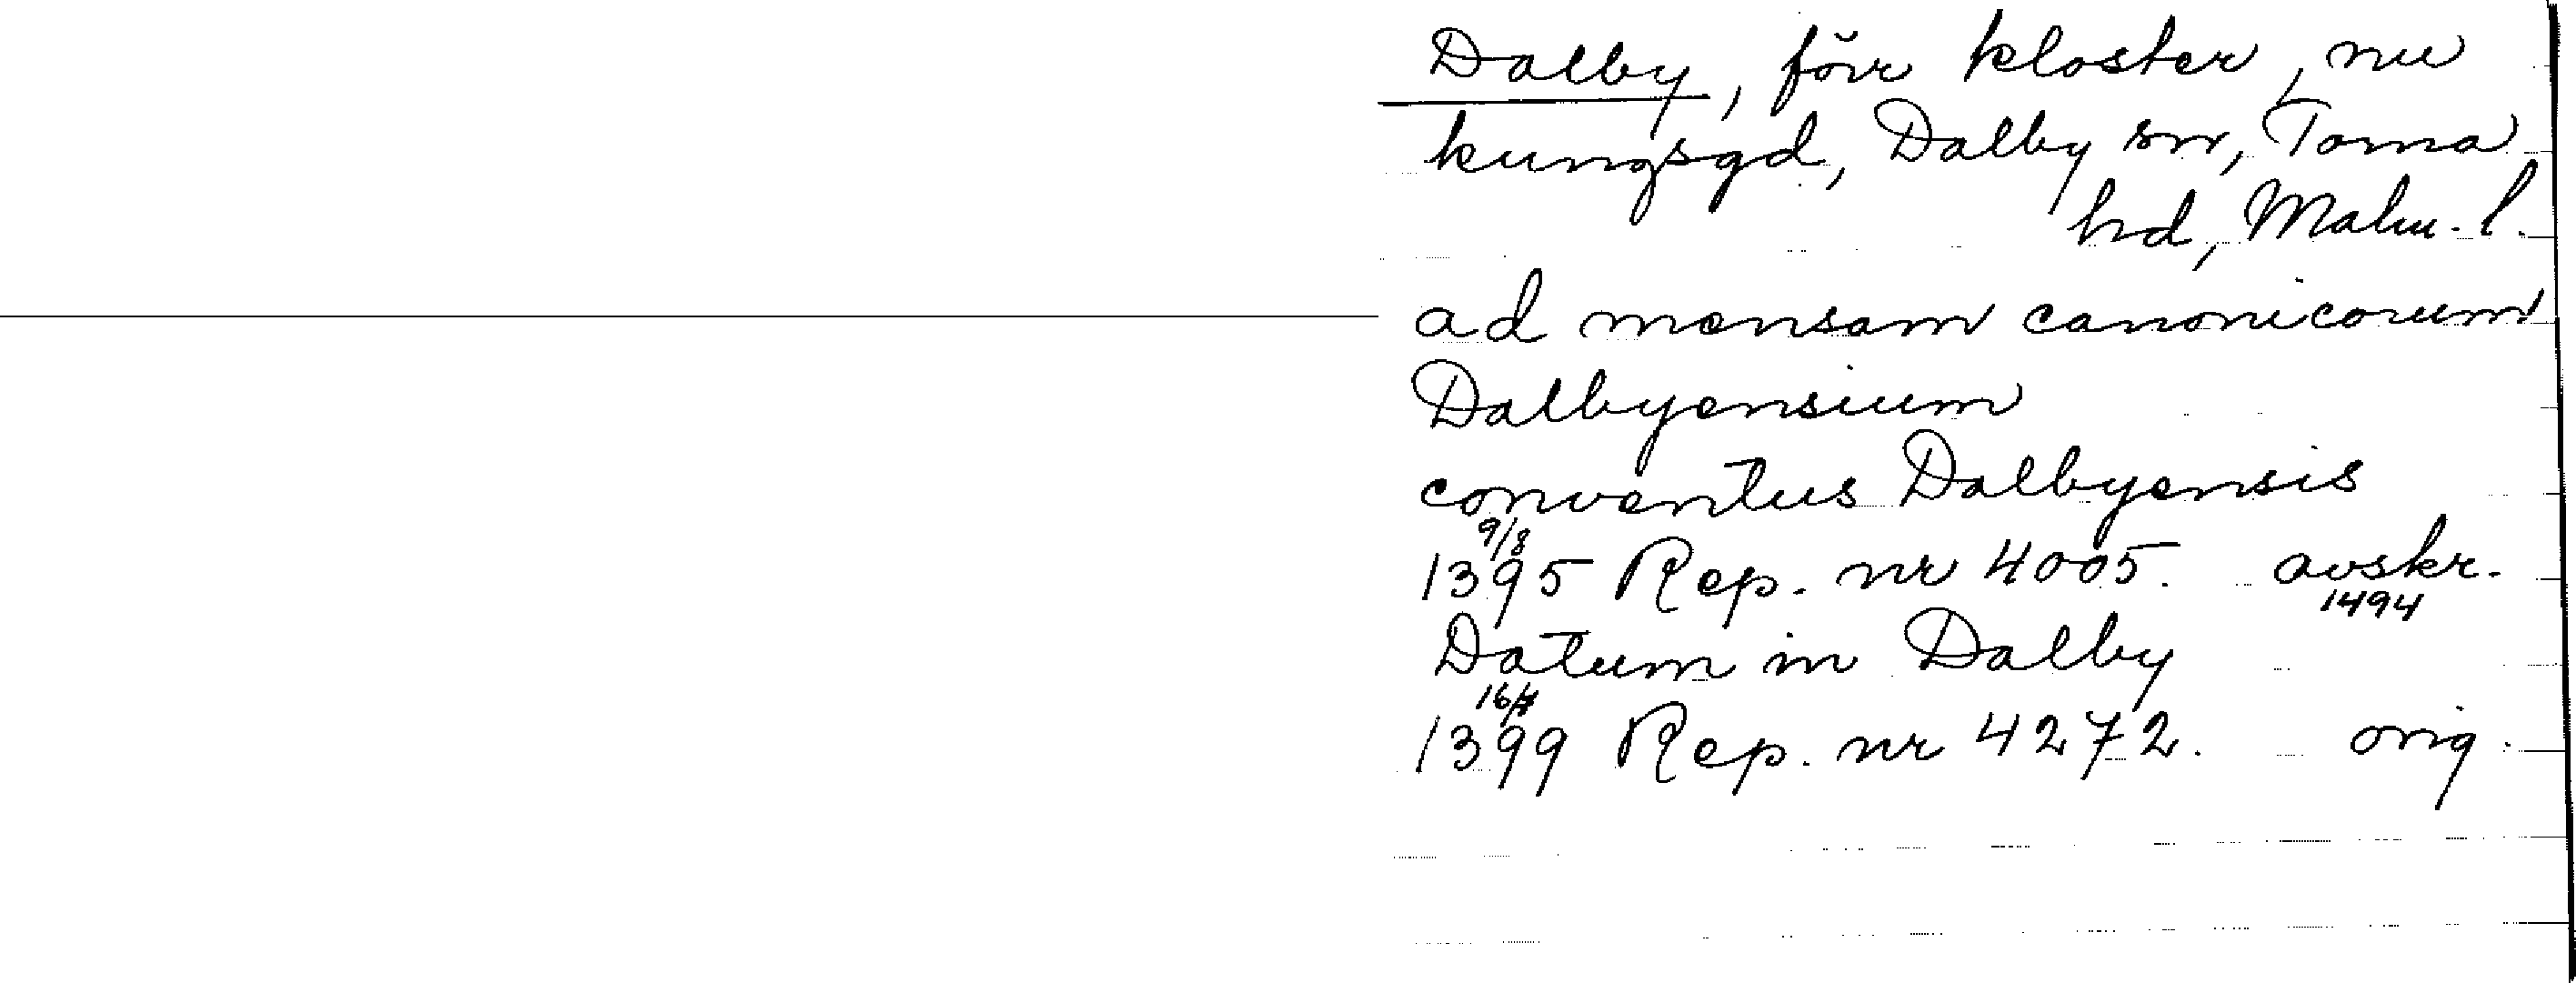 Dalby, förr kloster, nu
kungsgd, Dalby sn, Torna
hd, Malm. l.
ad mensam canonicorum
Dalbyensium
conventus Dalbyensis
9/8
1395 Rep. nr 4005. avskr.
1494
Datum in Dalby
1399 Rep. nr 4272. orig.